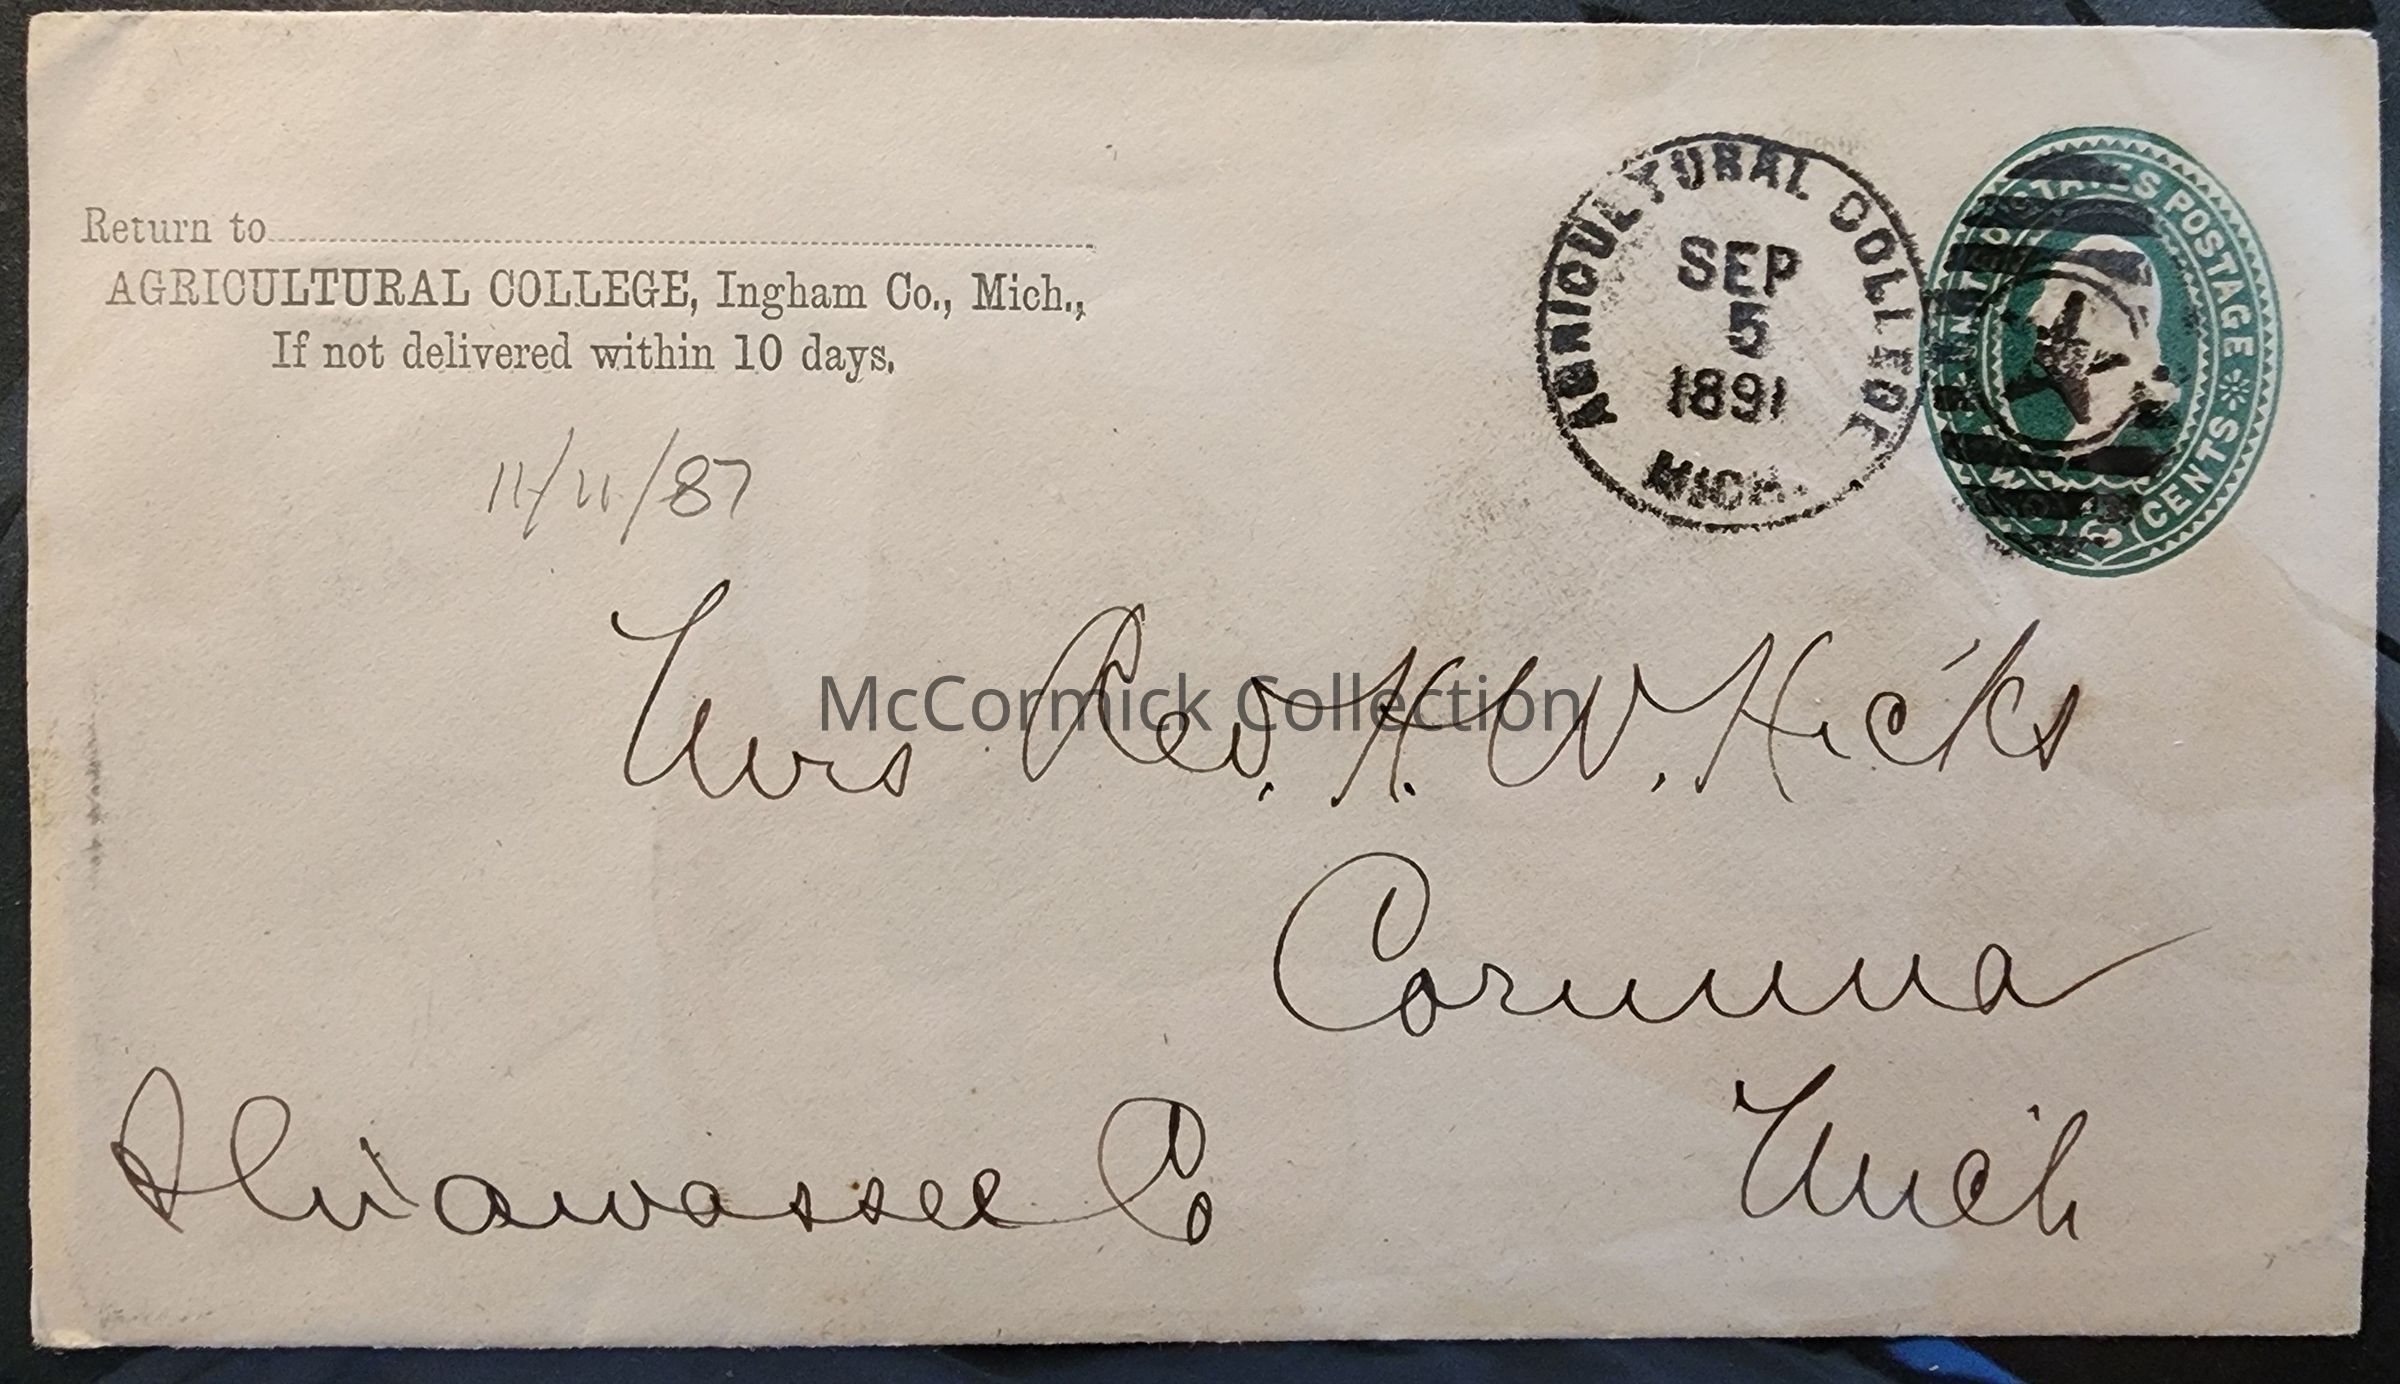 Return to
AGRICULTURAL COLLEGE, Ingham Co., Mich.,
If not delivered within 10 days.
AGRICULTURAL COLLEGE
SEP
5
1891
MICH.
STATES POSTAGE
TWO CENTS
11/11/87
Mrs Rev. H. W. Hicks
McCormick Collection
Corunna
Shiawassee Co
Mich